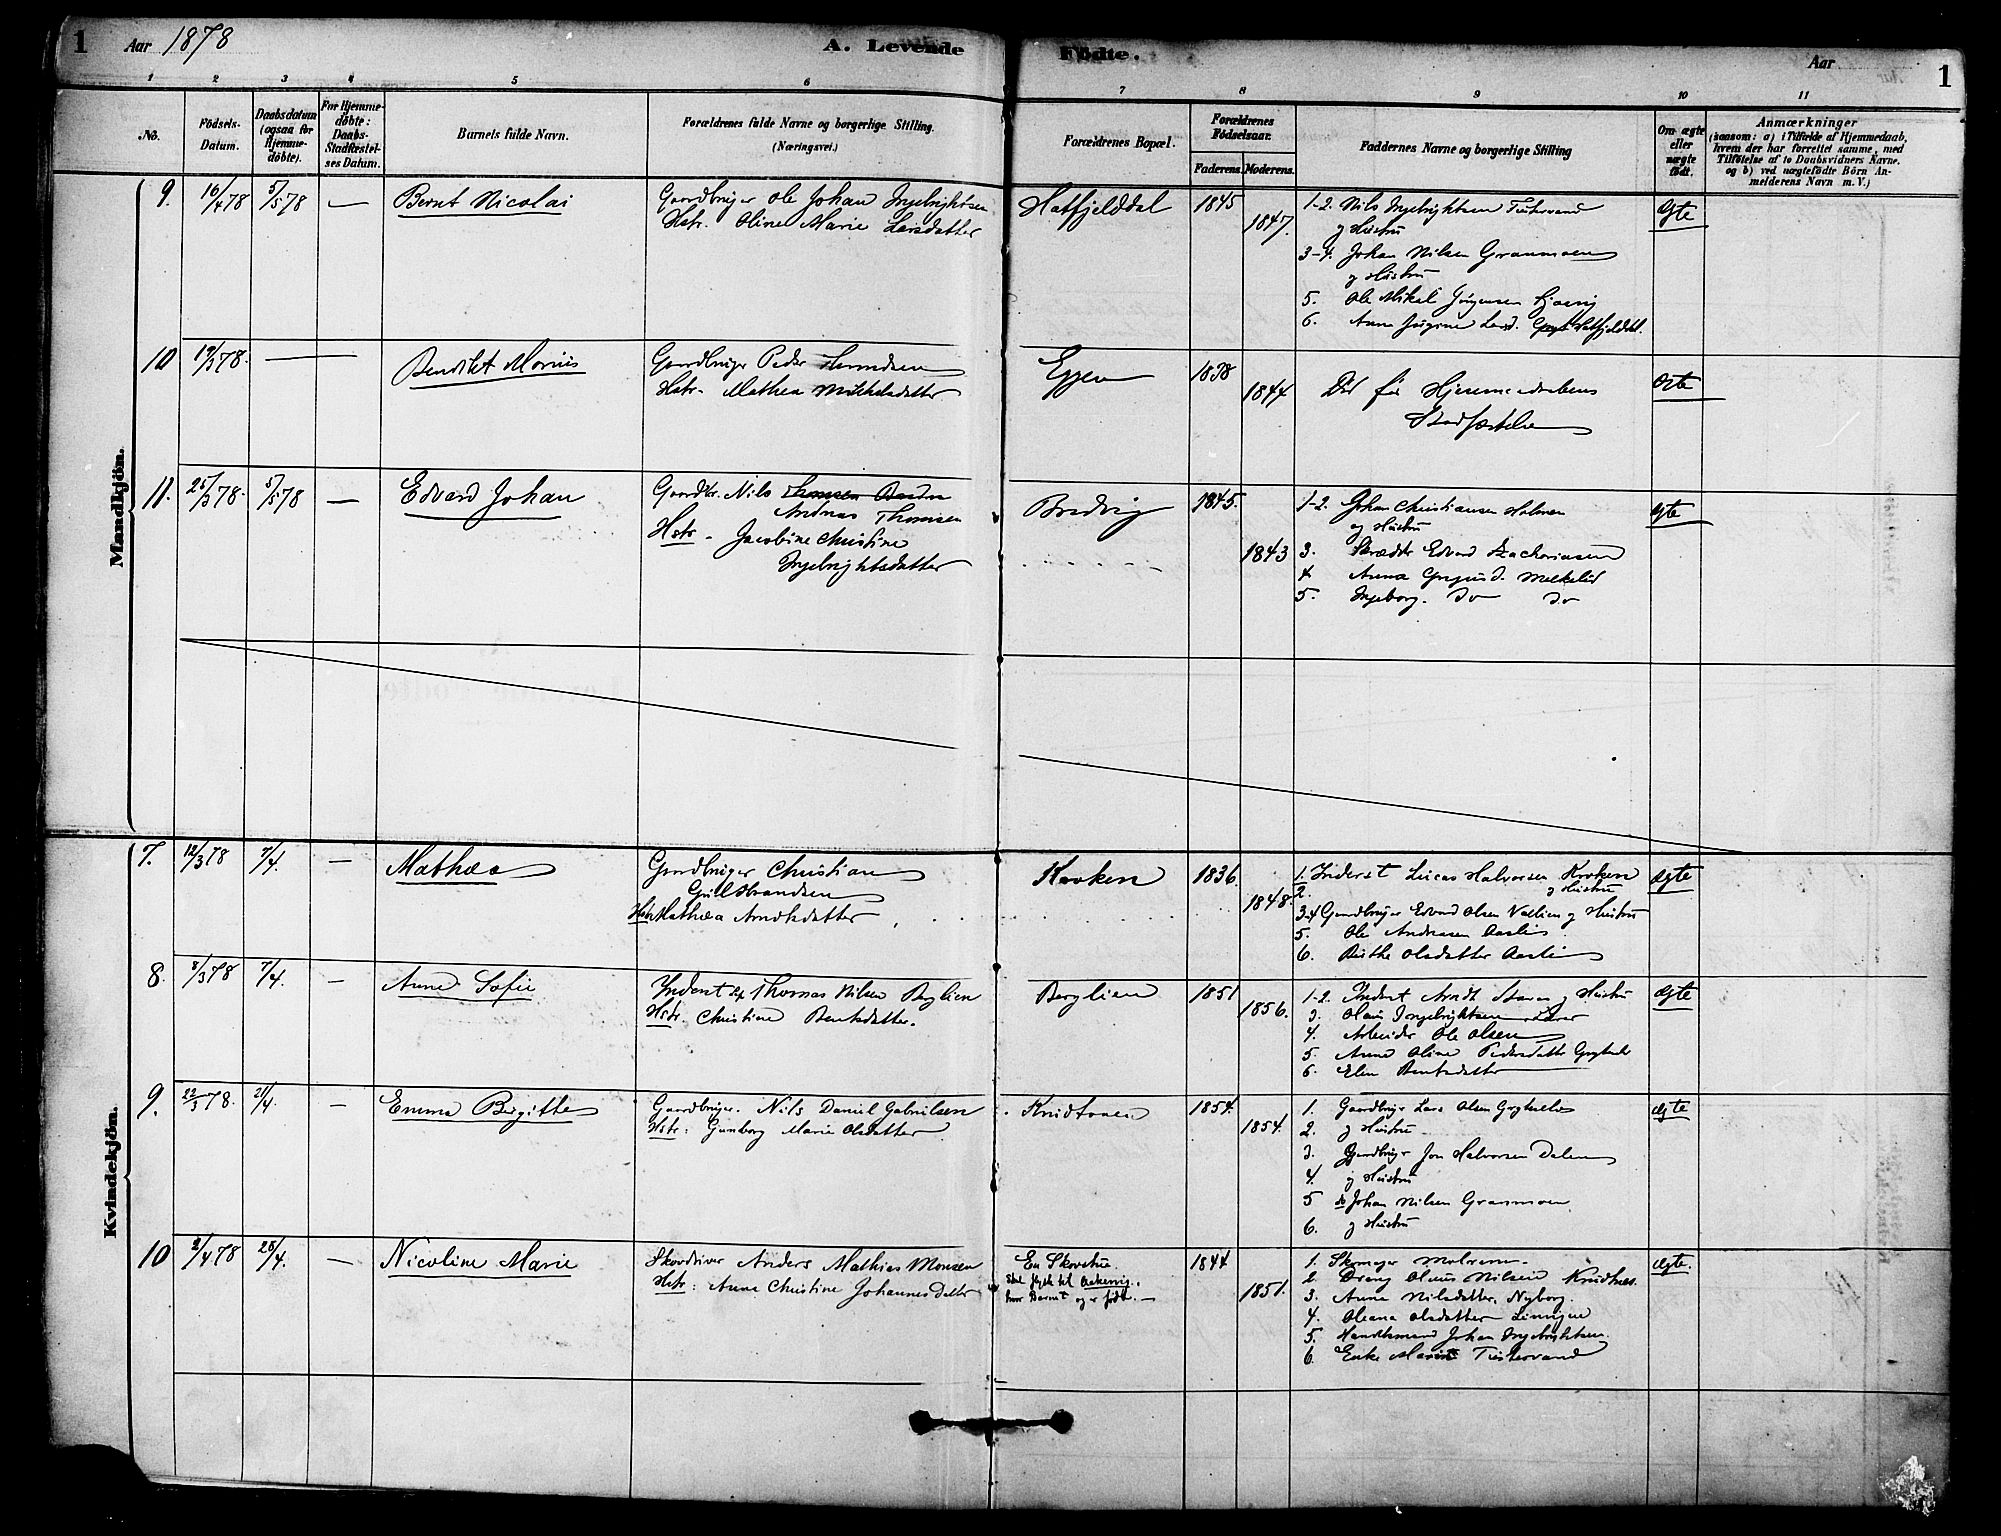 1 Aar 1878 A. Levende Födte. Aar 1
1 2 3 4 5 6 7 8 9 10 11
No.
Födsels-Datum.
Daabsdatum (ogsaa for Hjemme-döbte).
For Hjemme-döbte: Daabs-Stadfæstel-ses Datum.
Barnets fulde Navn.
Forældrenes fulde Navne og borgerlige Stilling.
(Næringsvei.)
Forældrenes Bopæl.
Forældrenes Födselsaar.
Faderens. Moderens.
Faddernes Navne og borgerlige Stilling
Om ægte eller uægte födt.
Anmærkninger
(saasom: a) i Tilfælde af Hjemmedaab,
hvem der har forrettet samme, med
Tilföielse af to Daabsvidners Navne.
og b) ved uægtefödte Börn An-
melderens Navn m. V.)
Mandkjön.
9. 16/4 78 5/5 78 — Bernt Nicolai
Gaardbruger Ole Johan Ingebrigtsen
Hstr. Oline Marie Larsdatter
Hatfjelddal 1845 1847.
1-2. Nils Ingebrigtsen Tustervand
og Hustru
3-4. Johan Nilsen Granmoen
og Hustru
5. Ole Mikal Jørgensen
6. Anna Hatfjelddal.
Ægte
10 19/3 78. — Bendikt Morius
Gaardbruger Peder
Hstr. Mathea Mikkelsdatter
1838 1844
Død før Hjemmedaabens
Stadfæstelse
Ægte
11. 25/3 78. 5/5 78 — Edvard Johan
Gaardbr. Nils
Andreas Thomsen
Hstr. Jacobine Christine
Ingebrigtsdatter
Bredvig 1845. 1843
1-2. Johan Christiansen
og Hustru
3. Skrædder Edvard Zachariasen
4 Anna
5. Ingeborg. do do
Ægte
Kvindekjön.
7. 12/3 78 7/4. — Mathea
Gaardbruger Christian
Hstr Mathea Arntsdatter
Kroken 1836. 1848.
1. Inderst Lucas Halvorsen Kroken
2. og Hustru
3-4 Gaardbruger Edvard Olsen og Hustru
5. Ole Andreasen Aaslie
6. Olsdatter Aaslie
Ægte
8. 8/3 78 7/4 — Anne Sofie
Inderst Thomas Nilsen Berglien
Hstr. Christine Bentsdatter.
Berglien 1851 1856.
1-2. Inderst Arndt og Hustru
3. Olaus Ingebrigtsen
4. Arbeider Ole Olsen
5. Anne Oline Pedersdatter
6. Elen Bentsdatter
Ægte
9. 22/3 78. 21/4. — Emma Birgitte
Gaardbruger. Nils Daniel Gabrielsen
Hstr: Gunborg Marie Olsdatter
1854. 1854.
1. Gaardbruger Lars Olsen
2. og Hustru
3. Gaardbruger Jon Halvorsen Dalen
4. og Hustru
5 do Johan Nilsen Granmoen
6. og Hustru
Ægte
10 2/4 78 28/4. — Nicoline Marie
Anders Mathias Monsen
Hstr: Anne Christine Johannesdatter
hvor Barnet og er født. —
1844 1851.
1. Skomager
2. Dreng Olaus Nilsen
3. Anna Nilsdatter. Nyborg.
4. Oleana Olsdatter
5. Handelsmand Johan Ingebrigtsen.
6. Enke Marit Tustervand
Ægte.